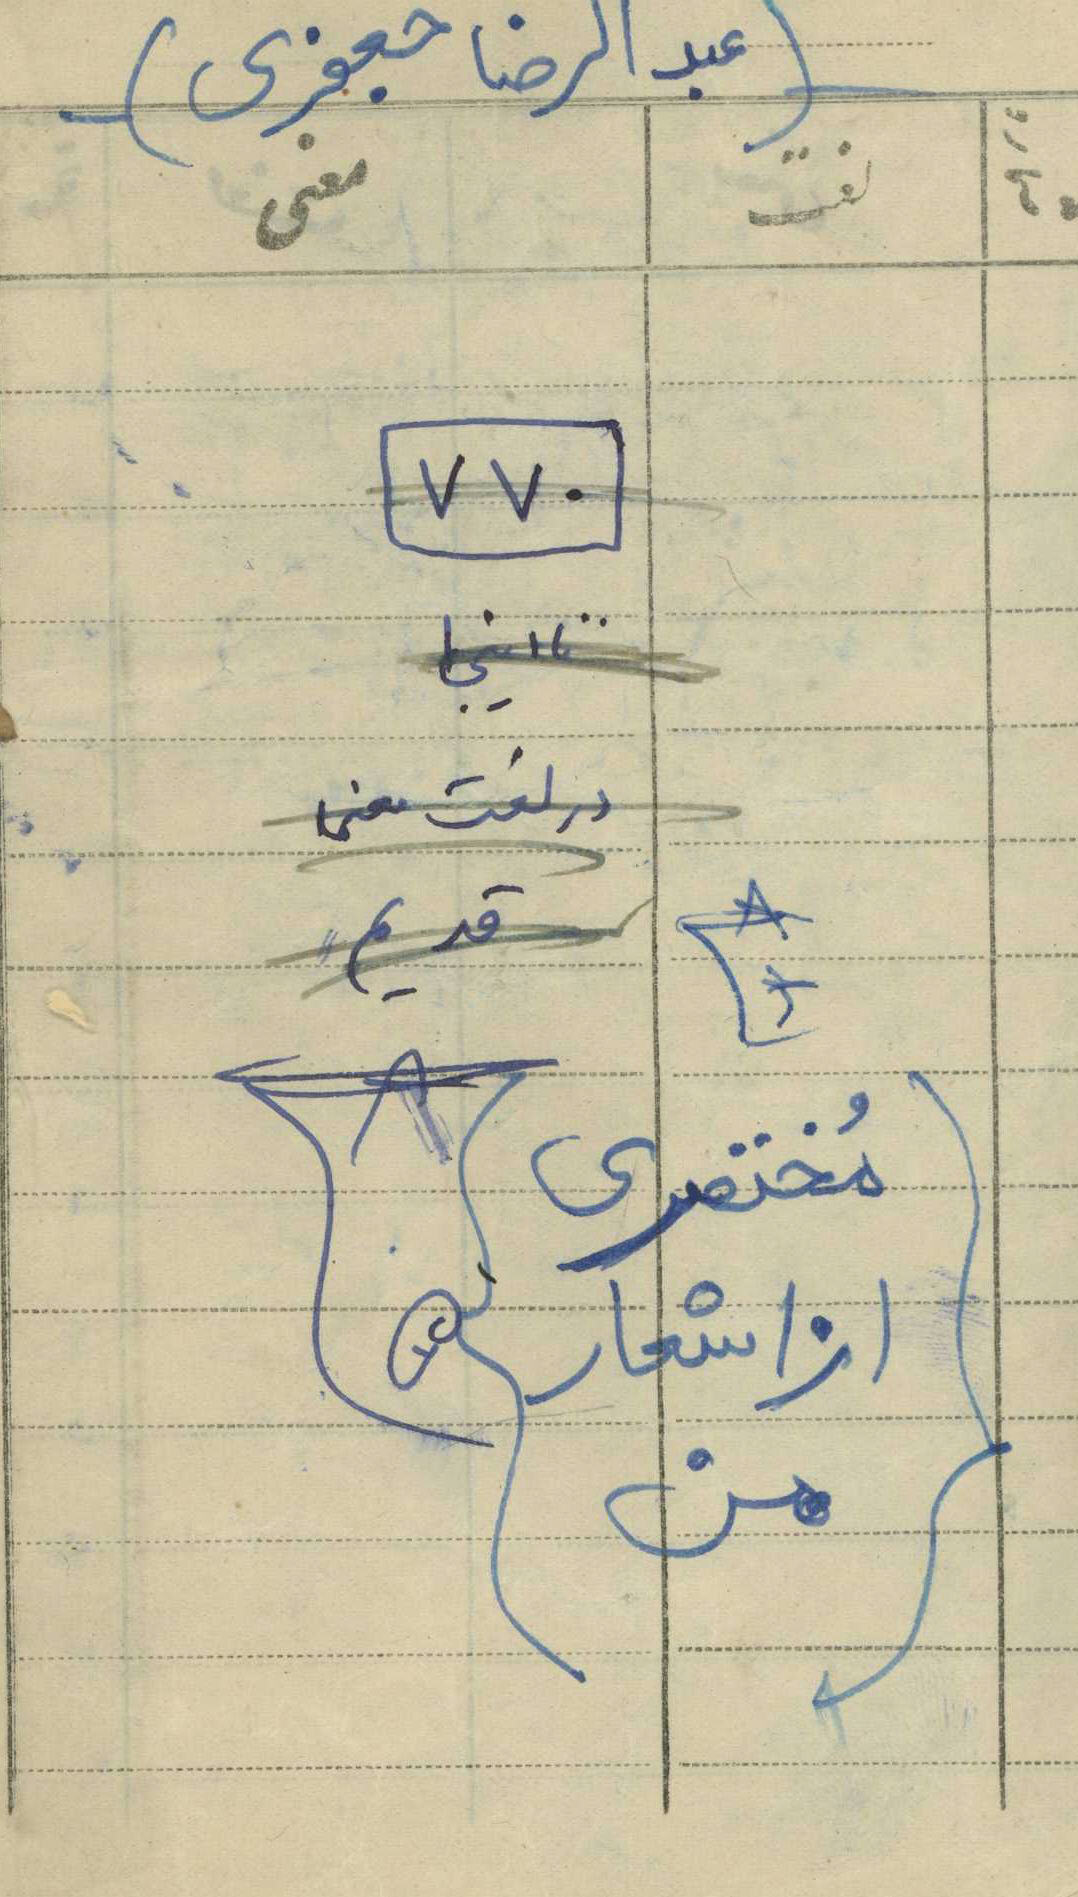 (عبدالرضا جعفری)
شماره لغت معنی
۷۷۰
تا اینجا
در لغت معنی
قدیم
مُختصری
از اشعار
من